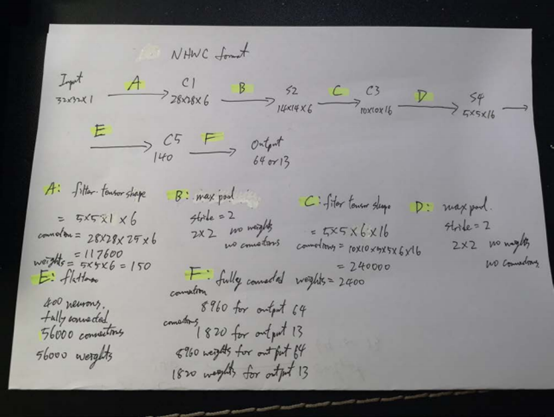 NHWC format
Input A C1 B S2 C C3 D S4
32x32x1 28x28x6 14x14x6 10x10x16 5x5x16
E C5 F Output
140 64 or 13
A: filter tensor shape
= 5x5x1x6
= 28x28x25x6
= 117600
weights = 5x5x6 = 150
B: max pool
stride = 2
2x2 no weights
no connections
C: filter tensor shape
= 5x5x6x16
connections = 10x10x5x5x6x16
= 240000
weights = 2400
D: max pool
stride = 2
2x2 no weights
no connections
E: flatten
400 neurons,
fully connected
56000 connections
56000 weights
F: fully connected
8960 for output 64
1820 for output 13
8960 weights for output 64
1820 weights for output 13